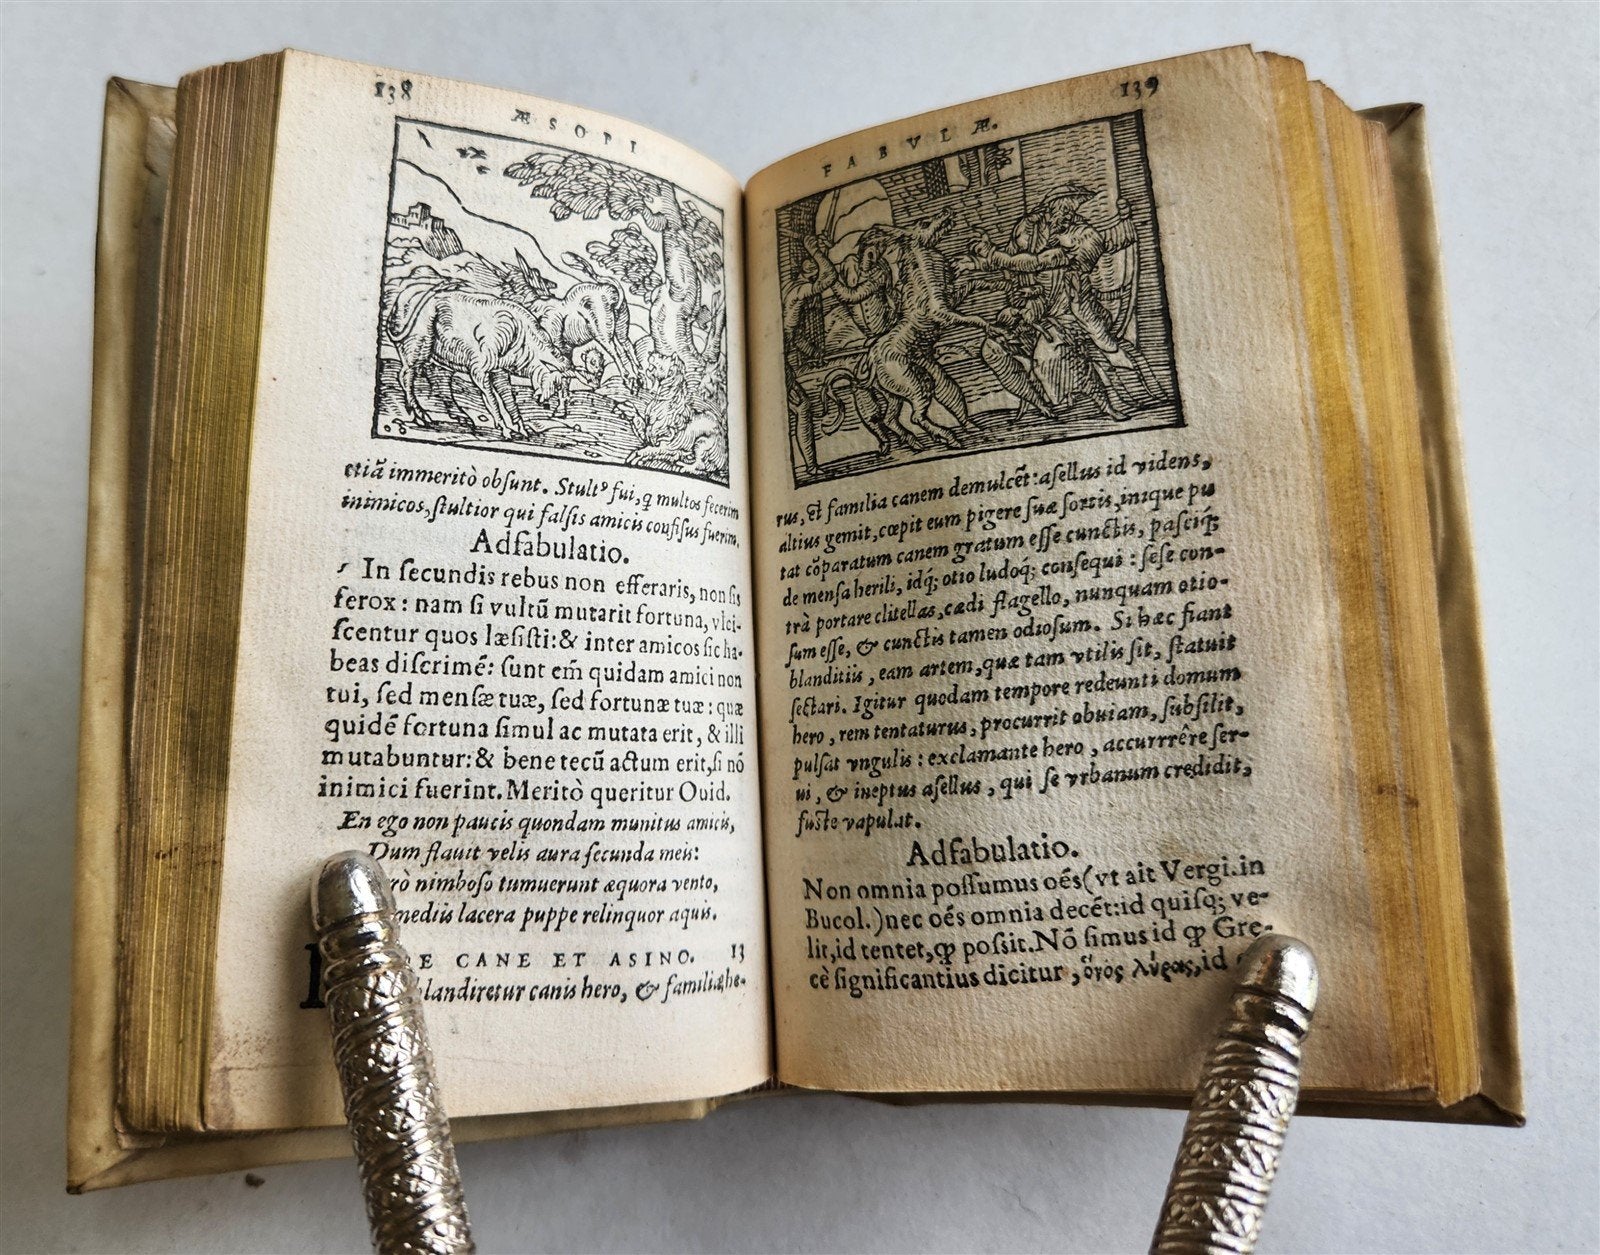 138
ÆSOPI
etiā immeritò obſunt. Stultꝰ fui, ꝗ multos fecerim
inimicos, ſtultior qui falſis amicis confiſus fuerim.
Adfabulatio.
In ſecundis rebus non efferaris, non ſis
ferox: nam ſi vultū mutarit fortuna, vlci-
ſcentur quos læſiſti: & inter amicos ſic ha-
beas diſcrimē: ſunt em̄ quidam amici non
tui, ſed menſæ tuæ, ſed fortunæ tuæ: quæ
quidē fortuna ſimul ac mutata erit, & illi
mutabuntur: & bene tecū actum erit, ſi nō
inimici fuerint. Meritò queritur Ouid.
En ego non paucis quondam munitus amicis,
Dum flauit velis aura ſecunda meis:
rò nimboſo tumuerunt æquora vento,
mediis lacera puppe relinquor aquis.
DE CANE ET ASINO. 13
blandiretur canis hero, & familiæ, he-
139
FABVLÆ.
rus, et familia canem demulcēt: aſellus id videns,
altius gemit, cœpit eum pigere ſuæ ſortis, inique pu
tat cōparatum canem gratum eſſe cunctis, paſciq́;
de menſa herili, idq́; otio ludoq́; conſequi: ſeſe con-
trà portare clitellas, cædi flagello, nunquam otio-
ſum eſſe, & cunctis tamen odioſum. Si hæc fiant
blanditiis, eam artem, quæ tam vtilis ſit, ſtatuit
ſectari. Igitur quodam tempore redeunti domum
hero, rem tentaturus, procurrit obuiam, ſubſilit,
pulſat vngulis: exclamante hero, accurrrêre ſer-
ui, & ineptus aſellus, qui ſe vrbanum credidit,
fuſte vapulat.
Adfabulatio.
Non omnia poſſumus oēs (vt ait Vergi. in
Bucol.) nec oēs omnia decēt: id quiſq; ve-
lit, id tentet, ꝙ poſſit. Nō ſimus id ꝙ Græ-
cè ſignificantius dicitur, ὄνος λύρας, id